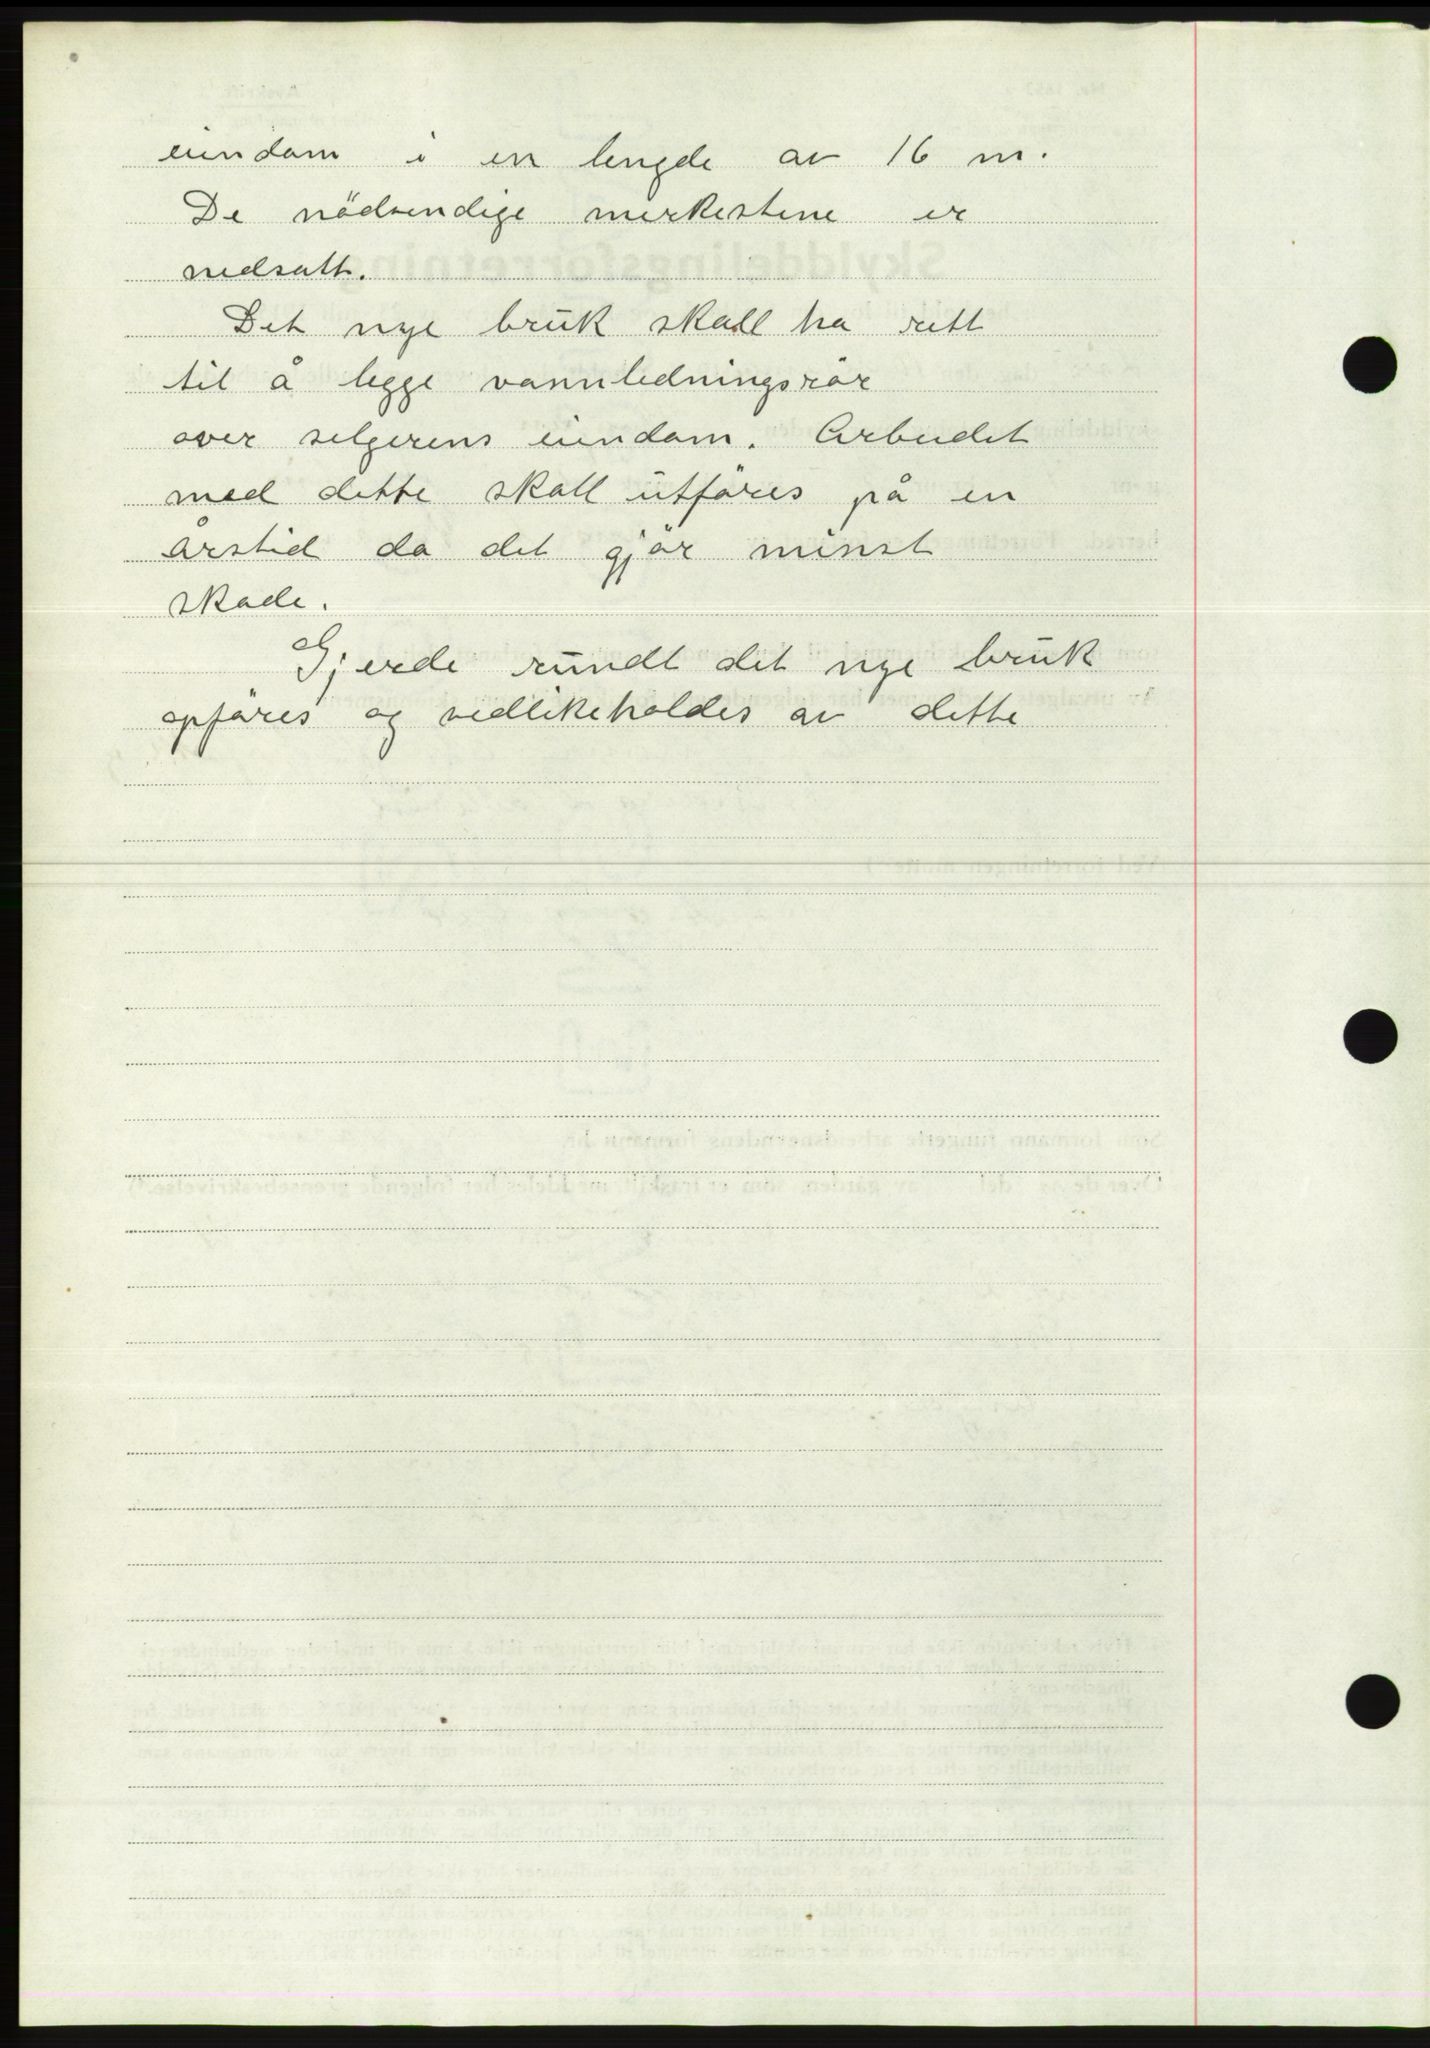 eiendom i en lengde av 16 m.
De nödvendige merkestene er
nedsatt.
Det nye bruk skall ha rett
til å legge vannledningsrör
over selgerens eiendom. Arbeidet
med dette skall utföres på en
årstid da det gjör minst
skade.
Gjerde rundt det nye bruk
opföres og vedlikeholdes av dette